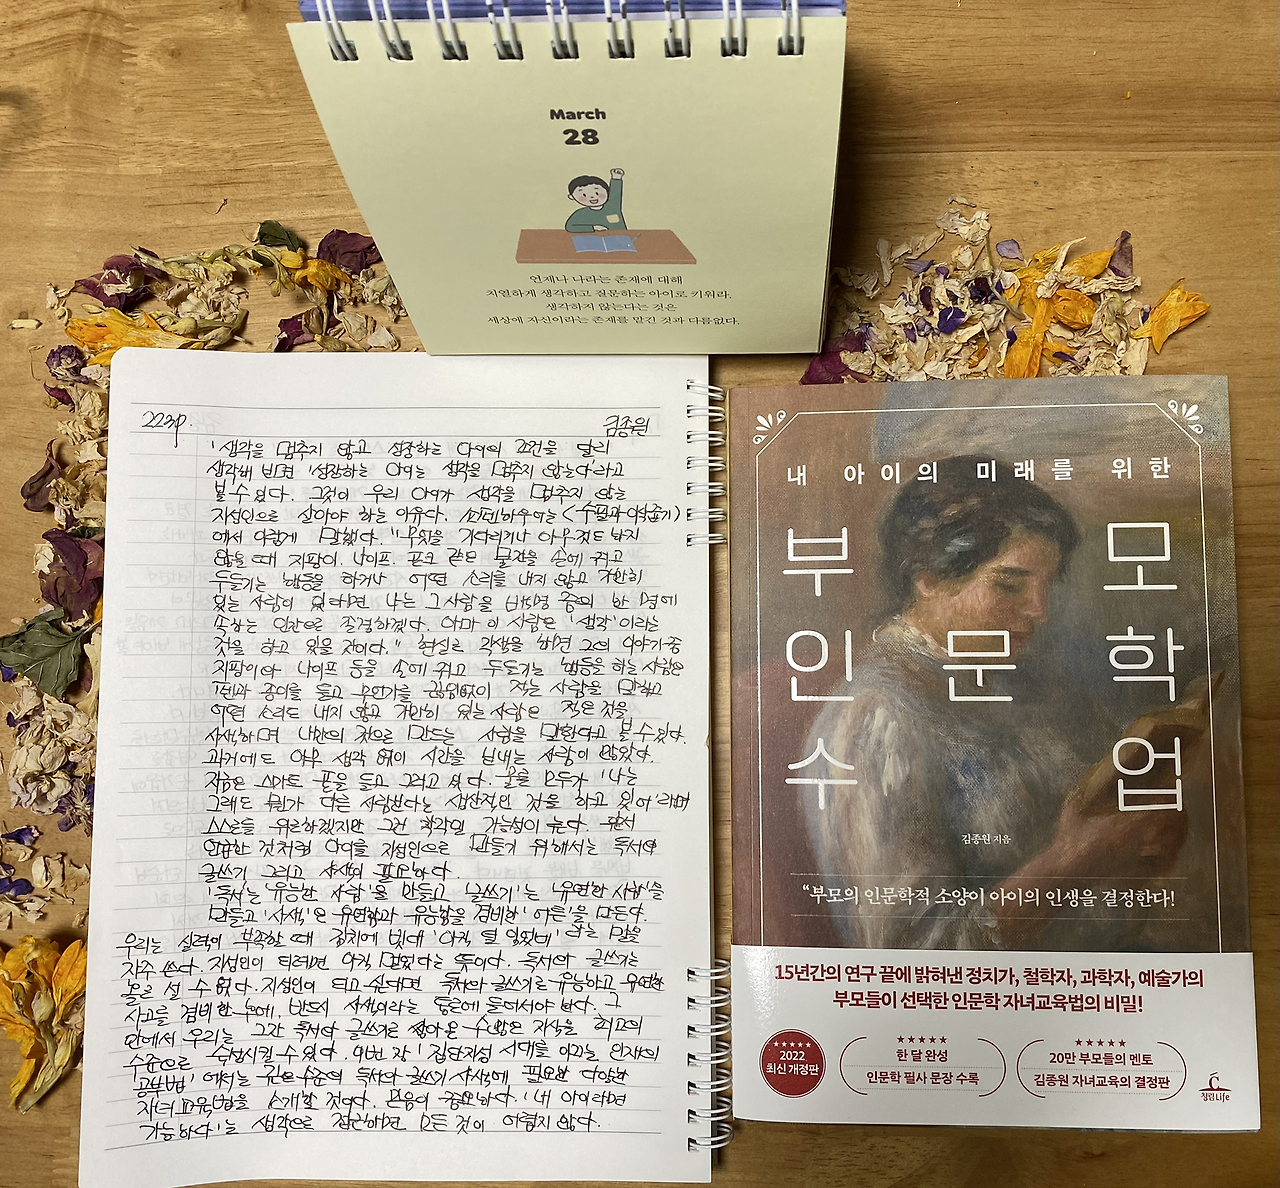 March
28
언제나 나라는 존재에 대해
치열하게 생각하고 질문하는 아이로 키워라.
생각하지 않는다는 것은
세상에 자신이라는 존재를 맡긴 것과 다름없다.
223p.
김종원
'생각을 멈추지 않고 성장하는 아이의 조건을 달리
생각해 보면 '성장하는 아이는 생각을 멈추지 않는다'라고
볼 수 있다. 그것이 우리 아이가 생각을 멈추지 않는
지성인으로 살아야 하는 이유다. 쇼펜하우어는 <수필과 이삭줍기>
에서 이렇게 말했다. "무엇을 기다리거나 아무것도 하지
않을 때 지팡이, 나이프, 포크 같은 물건을 손에 쥐고
두들기는 행동을 하거나 어떤 소리를 내지 않고 가만히
있는 사람이 있다면 나는 그 사람을 백 명 중의 한 명에
속하는 인간으로 존경하겠다. 아마 이 사람은 '생각'이라는
것을 하고 있을 것이다." 현실로 각색을 하면 그의 이야기 중
지팡이와 나이프 등을 손에 쥐고 두들기는 행동을 하는 사람은
펜과 종이를 들고 무언가를 끊임없이 적는 사람을 말하고
어떤 소리도 내지 않고 가만히 있는 사람은 적은 것을
사색하며 나만의 것으로 만드는 사람을 말한다고 볼 수 있다.
과거에도 아무 생각 없이 시간을 보내는 사람이 많았다.
지금은 스마트 폰을 들고 그러고 있다. 물론 모두가 '나는
그래도 뭔가 다른 사람보다는 생산적인 것을 하고 있어'라며
스스로를 위로하겠지만 그건 착각일 가능성이 높다. 위에서
언급한 것처럼 아이를 지성인으로 만들기 위해서는 독서와
글쓰기 그리고 사색이 필요하다.
'독서'는 '유능한 사람'을 만들고 '글쓰기'는 '유연한 사람'을
만들고 '사색'은 유연함과 유능함을 겸비한 '어른'을 만든다.
우리는 실력이 부족한 때 경치에 빗대 '아직 덜 익었네' 라는 말을
자주 쓴다. 지성인이 되려면 아직 멀었다는 뜻이다. 독서와 글쓰기는
홀로 설 수 없다. 지성인이 되고 싶다면 독서와 글쓰기로 유능하고 유연한
사고를 겸비한 후에, 반드시 사색이라는 통로에 들어서야 한다. 그
안에서 우리는 그간 독서와 글쓰기로 쌓아온 수많은 지식을 최고의
수준으로 숙성시킬 수 있다. 이번 장 '집단지성 시대를 이끄는 인재의
공부법' 에서는 깊은 수준의 독서와 글쓰기 사색에 필요한 다양한
자녀 교육법을 소개할 것이다. 믿음이 중요하다. '내 아이라면
가능하다'는 생각으로 접근하면 모든 것이 어렵지 않다.
내 아이의 미래를 위한
부모
인문학
수업
김종원 지음
"부모의 인문학적 소양이 아이의 인생을 결정한다!
15년간의 연구 끝에 밝혀낸 정치가, 철학자, 과학자, 예술가의
부모들이 선택한 인문학 자녀교육법의 비밀!
2022
최신 개정판
한 달 완성
인문학 필사 문장 수록
20만 부모들의 멘토
김종원 자녀교육의 결정판
청림Life